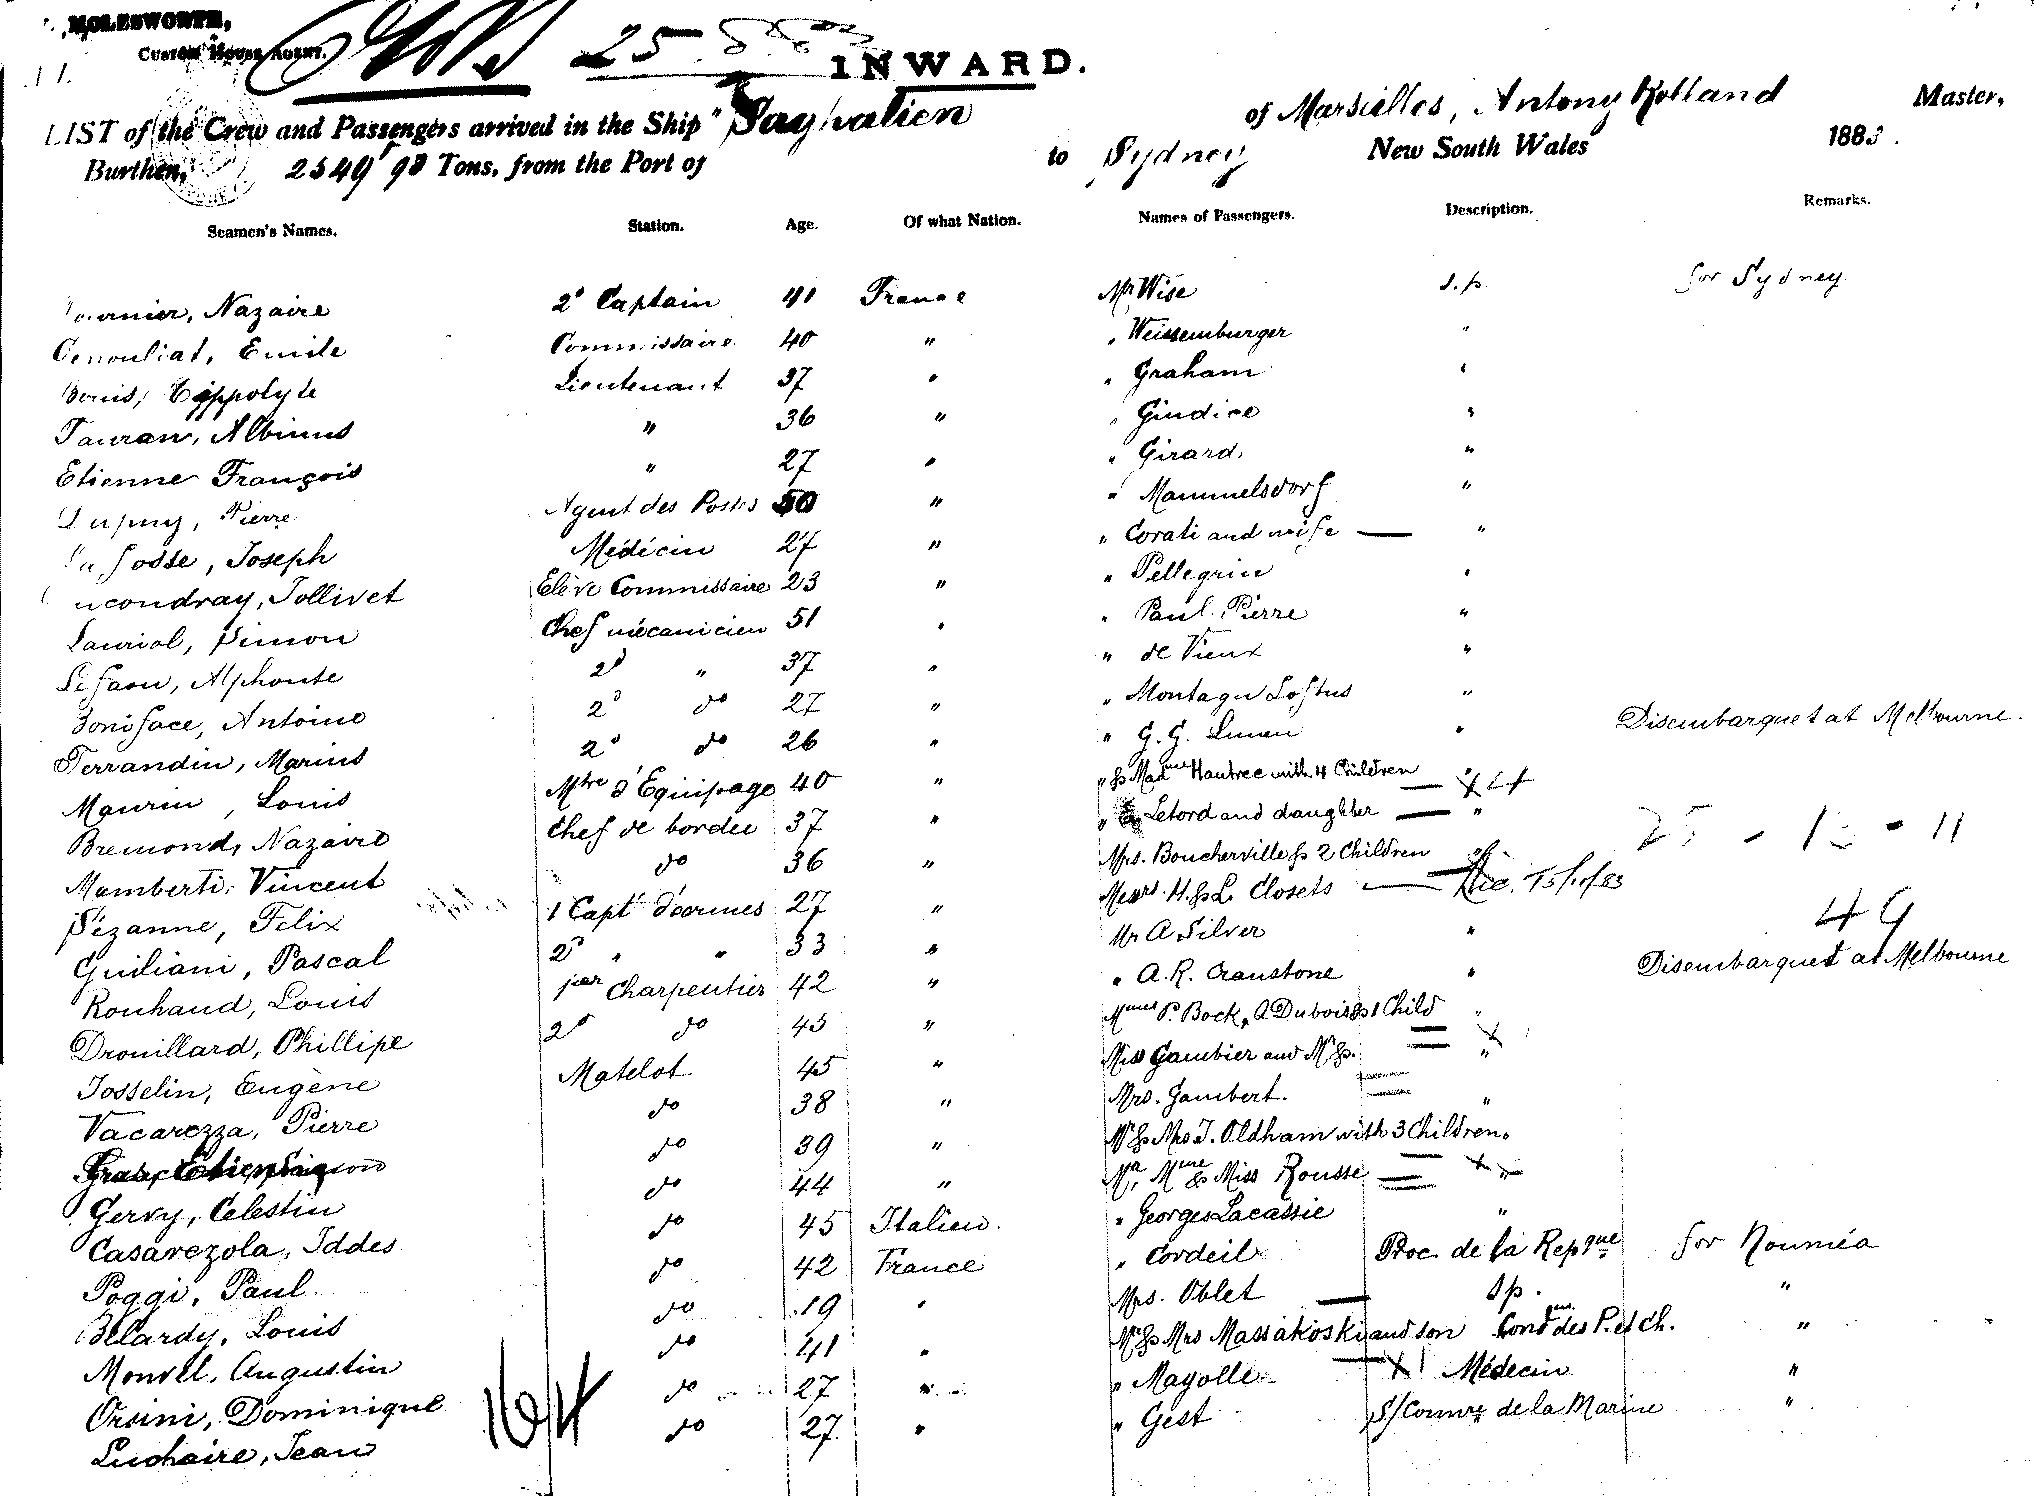 MOLESWORTH,
CUSTOM HOUSE AGENT.
25
INWARD.
LIST of the Crew and Passengers arrived in the Ship " of Marsielles, Antony Rolland Master,
Burthen, 2549 98 Tons, from the Port of to Sydney New South Wales 1883.
Seamen's Names. Station. Age. Of what Nation. Names of Passengers. Description. Remarks.
Nazaire 2d Captain 41 France Mr Wise s.p. for Sydney
Emile Commissaire 40 " " Weissemburger "
Hippolyte Lieutenant 37 " " Graham "
Tauran, Albinus " 36 " " Giudice "
Etienne François " 27 " " Girard. "
Dupuy, Pierre Agent des Postes 50 " " Mammelsdorf "
Joseph Médécin 27 " " Corati and wife — "
Jollivet Elève Commissaire 23 " " Pellegrin "
Lauriol, Simon Chef mécanicien 51 " " Paul Pierre "
Lefaou, Alphonse 2d " 37 " " de Vieux "
Boniface, Antoine 2d do 27 " " Montagu Loftus "
Ferrandin, Marius 2d do 26 " " G. G. "
Disembarquet at Melbourne.
Maurin, Louis Mtre d'Equipage 40 " " & Madme Hautree with 4 Children — " X 4
Bremond, Nazaire Chef de bordée 37 " " Letord and daughter — "
Mamberti, Vincent do 36 " Mrs. Boucherville & 2 Children "
Sézanne, Felix 1 Capt d'armes 27 " Messrs. H. & L. Closets —
Giuliani, Pascal 2d " " 33 " Mr A Silver "
49
Rouhaud, Louis 1er Charpentier 42 " " A. R. Cranstone " Disembarquet at Melbourne
Drouillard, Phillipe 2d do 45 " Mmes P. Bock, A Dubois & 1 Child "
Josselin, Eugène Matelot 45 " Miss Gambier and "
Vacarezza, Pierre do 38 " Mrs. Gambert. "
do 39 " Mr & Mrs J. Oldham with 3 Children.
Gervy, Celestin do 44 " Mr, Mme & Miss Rousse "
Casarezola, Iddes do 45 Italien. " Georges Lacassie "
Poggi, Paul do 42 France " Cordeil Proc. de la Repque for Nouméa
Belardy, Louis do 19 " Mrs. Oblet — sp. "
Monvel, Augustin do 41 " Mr & Mrs Massakoski and son des P. et Ch. "
Orsini, Dominique do 27 " " Mayolle X 1 Médecin "
Luchaire, Jean do 27 " " Gest S/Commre de la Marine "
164